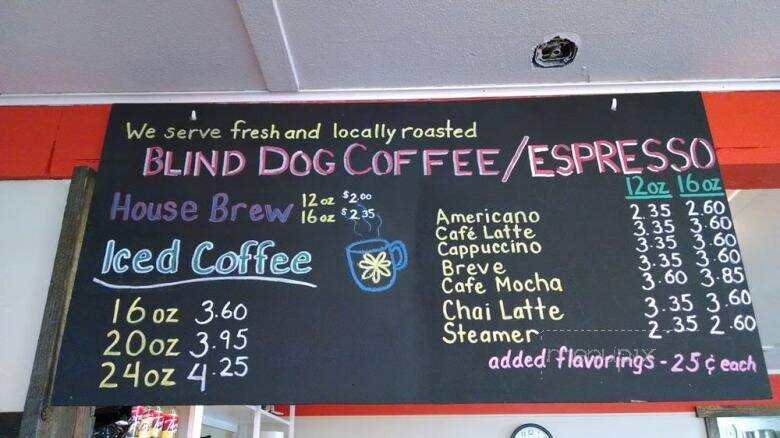 We serve fresh and locally roasted
BLIND DOG COFFEE/ESPRESSO
House Brew 12oz $2.00
16oz $2.35
Iced Coffee
16oz 3.60
20oz 3.95
24oz 4.25
12oz 16oz
Americano 2.35 2.60
Café Latte 3.35 3.60
Cappuccino 3.35 3.60
Breve 3.35 3.60
Cafe Mocha 3.60 3.85
Chai Latte 3.35 3.60
Steamer 2.35 2.60
added flavorings - 25¢ each